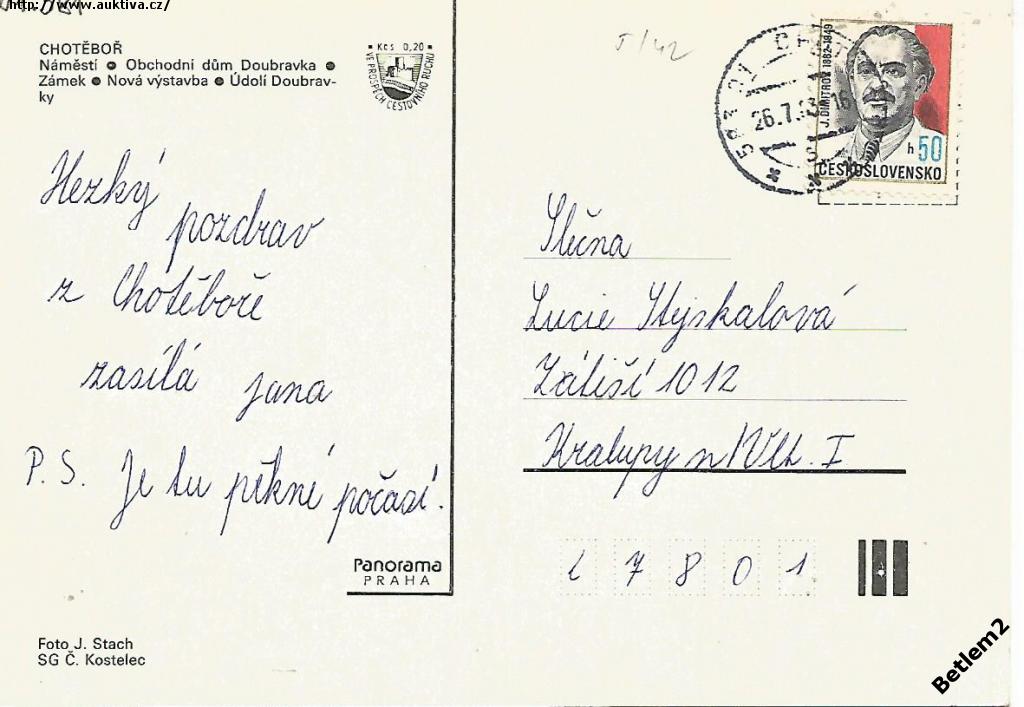 http://www.auktiva.cz/
CHOTĚBOŘ
Náměstí ● Obchodní dům Doubravka ●
Zámek ● Nová výstavba ● Údolí Doubrav-
ky
Kčs 0,20
VE PROSPĚCH CESTOVNÍHO RUCHU
5/42
583 01
26.7.
16
J. DIMITROV 1882-1949
h 50
ČESKOSLOVENSKO
Hezký
pozdrav
z Chotěboře
zasílá Jana
P.S. Je tu pěkné počasí.
Slečna
Lucie Stejskalová
Zátiší 1012
Kralupy n/Vlt. I
27801
Panorama
PRAHA
Foto J. Stach
SG Č. Kostelec
Betlem2